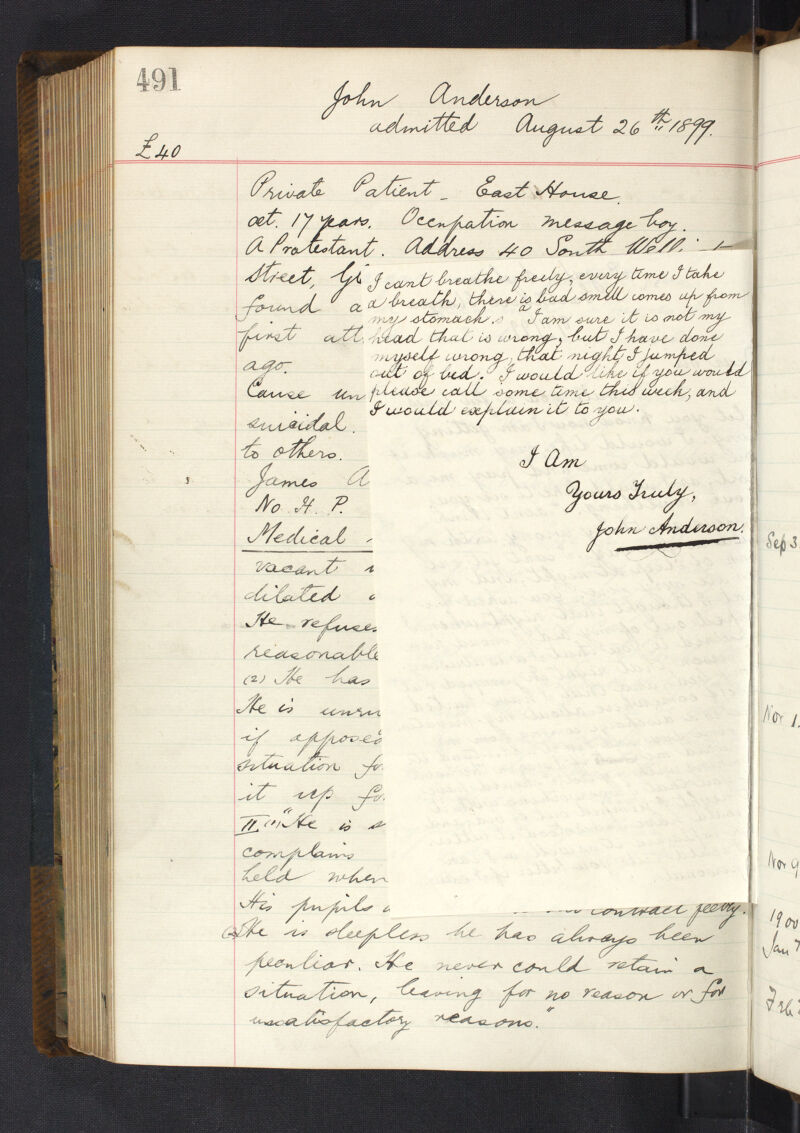 491
John Anderson
admitted August 26th 1899.
£40
Private Patient - East House.
aet. 17 years. Occupation message boy.
A Protestant. Address 40 South
Street,
found a
first att
ago.
Cause un
suicidal.
to others.
James A
No. H. P.
Medical
vacant
dilated
He refuses
reasonable
(2) He has
He is unru
if opposed
situation fo
it up fo
II. (1) "He is s
complains
held when
His pupils contract feebly.
(2) He is sleepless he has always been
peculiar. He never could retain a
situation, leaving for no reason or for
unsatisfactory reasons."
I cant breathe freely, every time I take
a breath, there is a bad smell comes up from
my stomach. I am sure it is not my
head that is wrong, but I have done
myself wrong, that night, I jumped
out of bed. I would like if you would
please call some time this week, and
I would explain it to you.
I Am
Yours Truly,
John Anderson.
Sep 3
Nov 1
Nov 9
1900
Jan 7
Feb